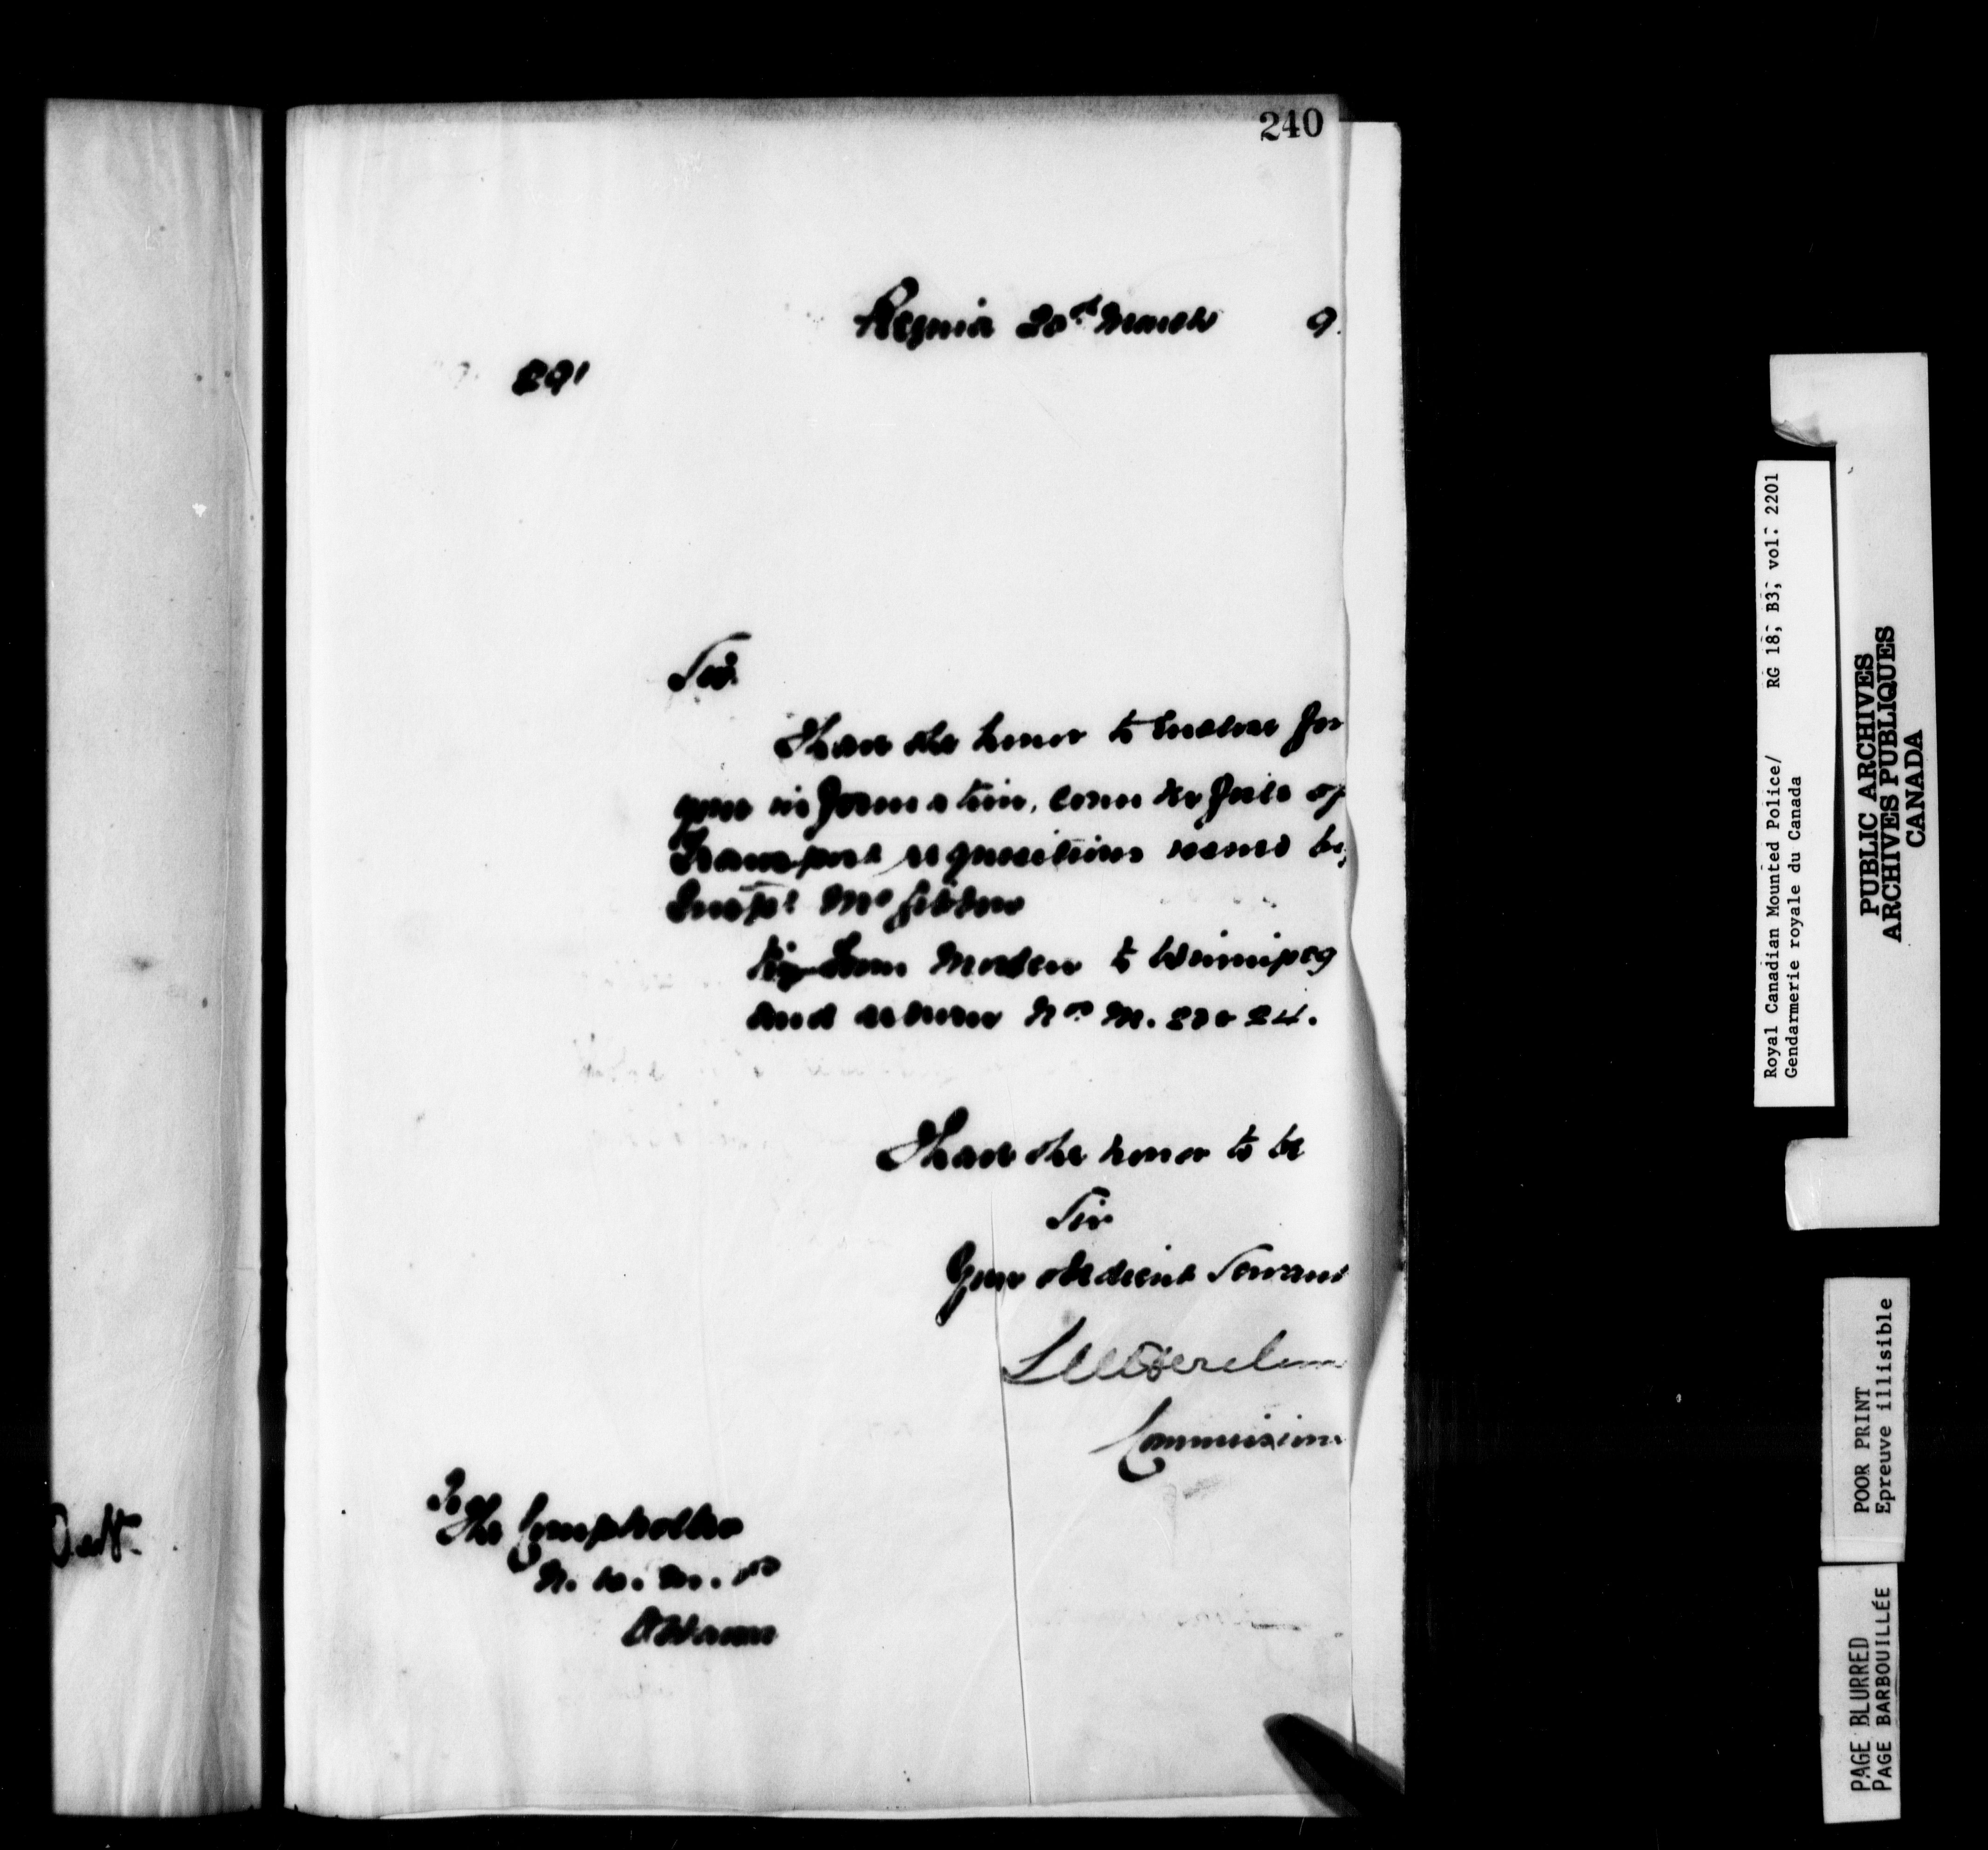 240
Regina 20th March 9
891
Sir.
I have the honor to enclose for
your information, counterfoils of
Transport requisitions issued by
Inspr McGibbon
from Morden to Winnipeg
and return Nos M. 24.
I have the honor to be
Sir
Your obedient Servant
LWHerchm
Commissione
To
The Comptroller
N. W. M. P
Ottawa
Royal Canadian Mounted Police/ RG 18, B3, vol. 2201
Gendarmerie royale du Canada
PUBLIC ARCHIVES
ARCHIVES PUBLIQUES
CANADA
POOR PRINT
Epreuve illisible
PAGE BLURRED
PAGE BARBOUILLÉE